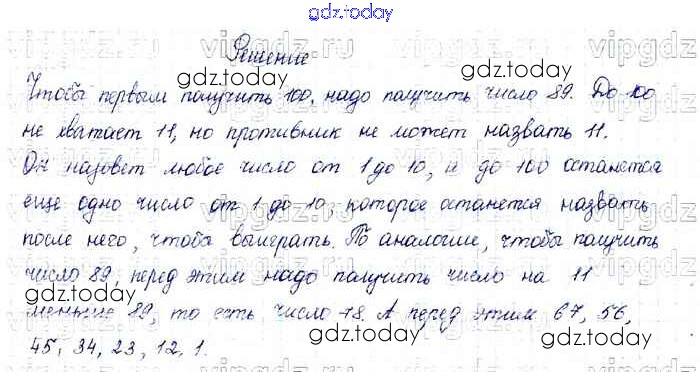 gdz.today
Решение
Чтобы первым получить 100, надо получить число 89. До 100
не хватает 11, но противник не может назвать 11.
Он назовет любое число от 1 до 10, и до 100 останется
еще одно число от 1 до 10, которое останется назвать
после него, чтобы выиграть. По аналогие, чтобы получить
число 89, перед этим надо получить число на 11
меньше 89, то есть число 78. А перед этим 67, 56,
45, 34, 23, 12, 1.
gdz.today
gdz.today
gdz.today
gdz.today
gdz.today
gdz.today